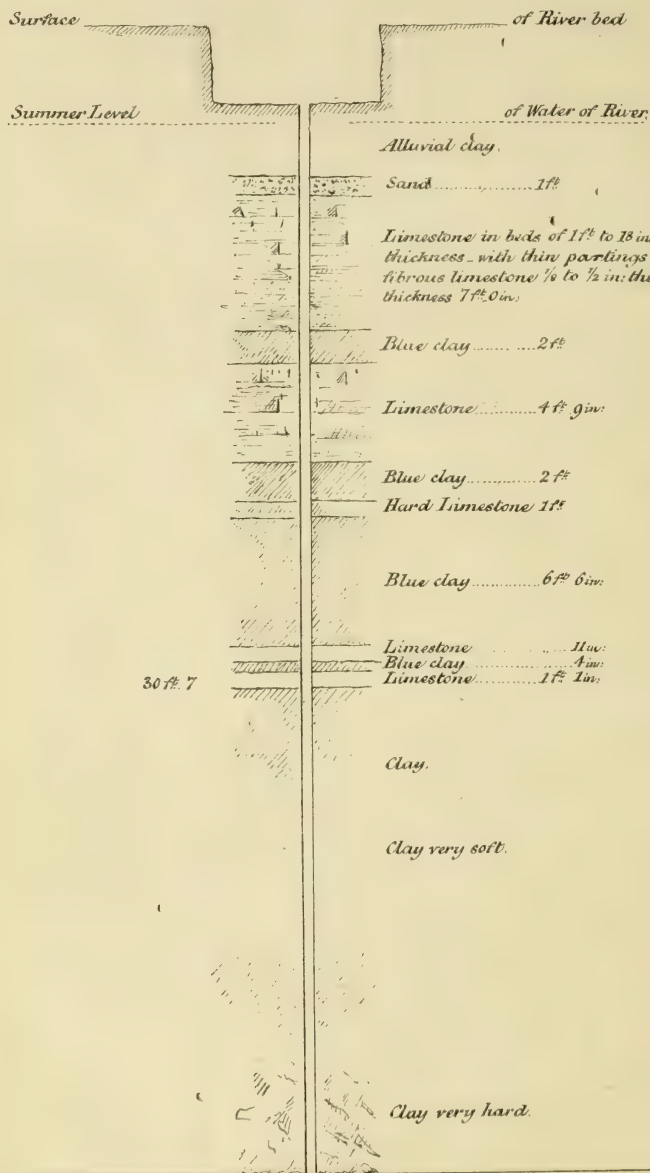 Surface of River bed
Summer Level of Water of River.
Alluvial clay.
Sand ............ 1ft
Limestone in beds of 1ft to 18 in
thickness _ with thin partings
fibrous limestone 1/8 to 1/2 in: the
thickness 7ft. 0in:
Blue clay ............ 2ft
Limestone ............ 4ft 9in:
Blue clay ............ 2ft
Hard Limestone 1ft
Blue clay ............ 6ft 6in:
Limestone ............ 11in:
Blue clay ............ 4in:
Limestone ............ 1ft 1in:
30 ft. 7
Clay.
Clay very soft.
Clay very hard.